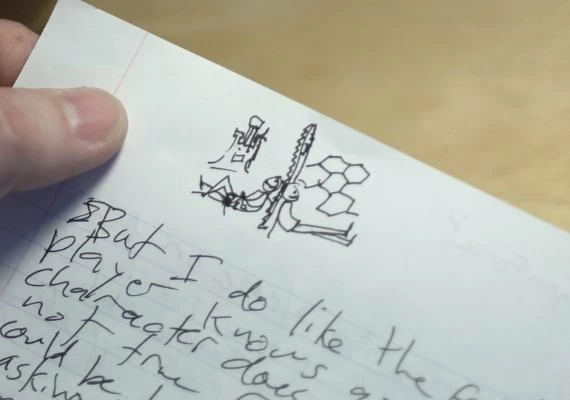 But I do like the
player knows
character does
not true
could be
asking